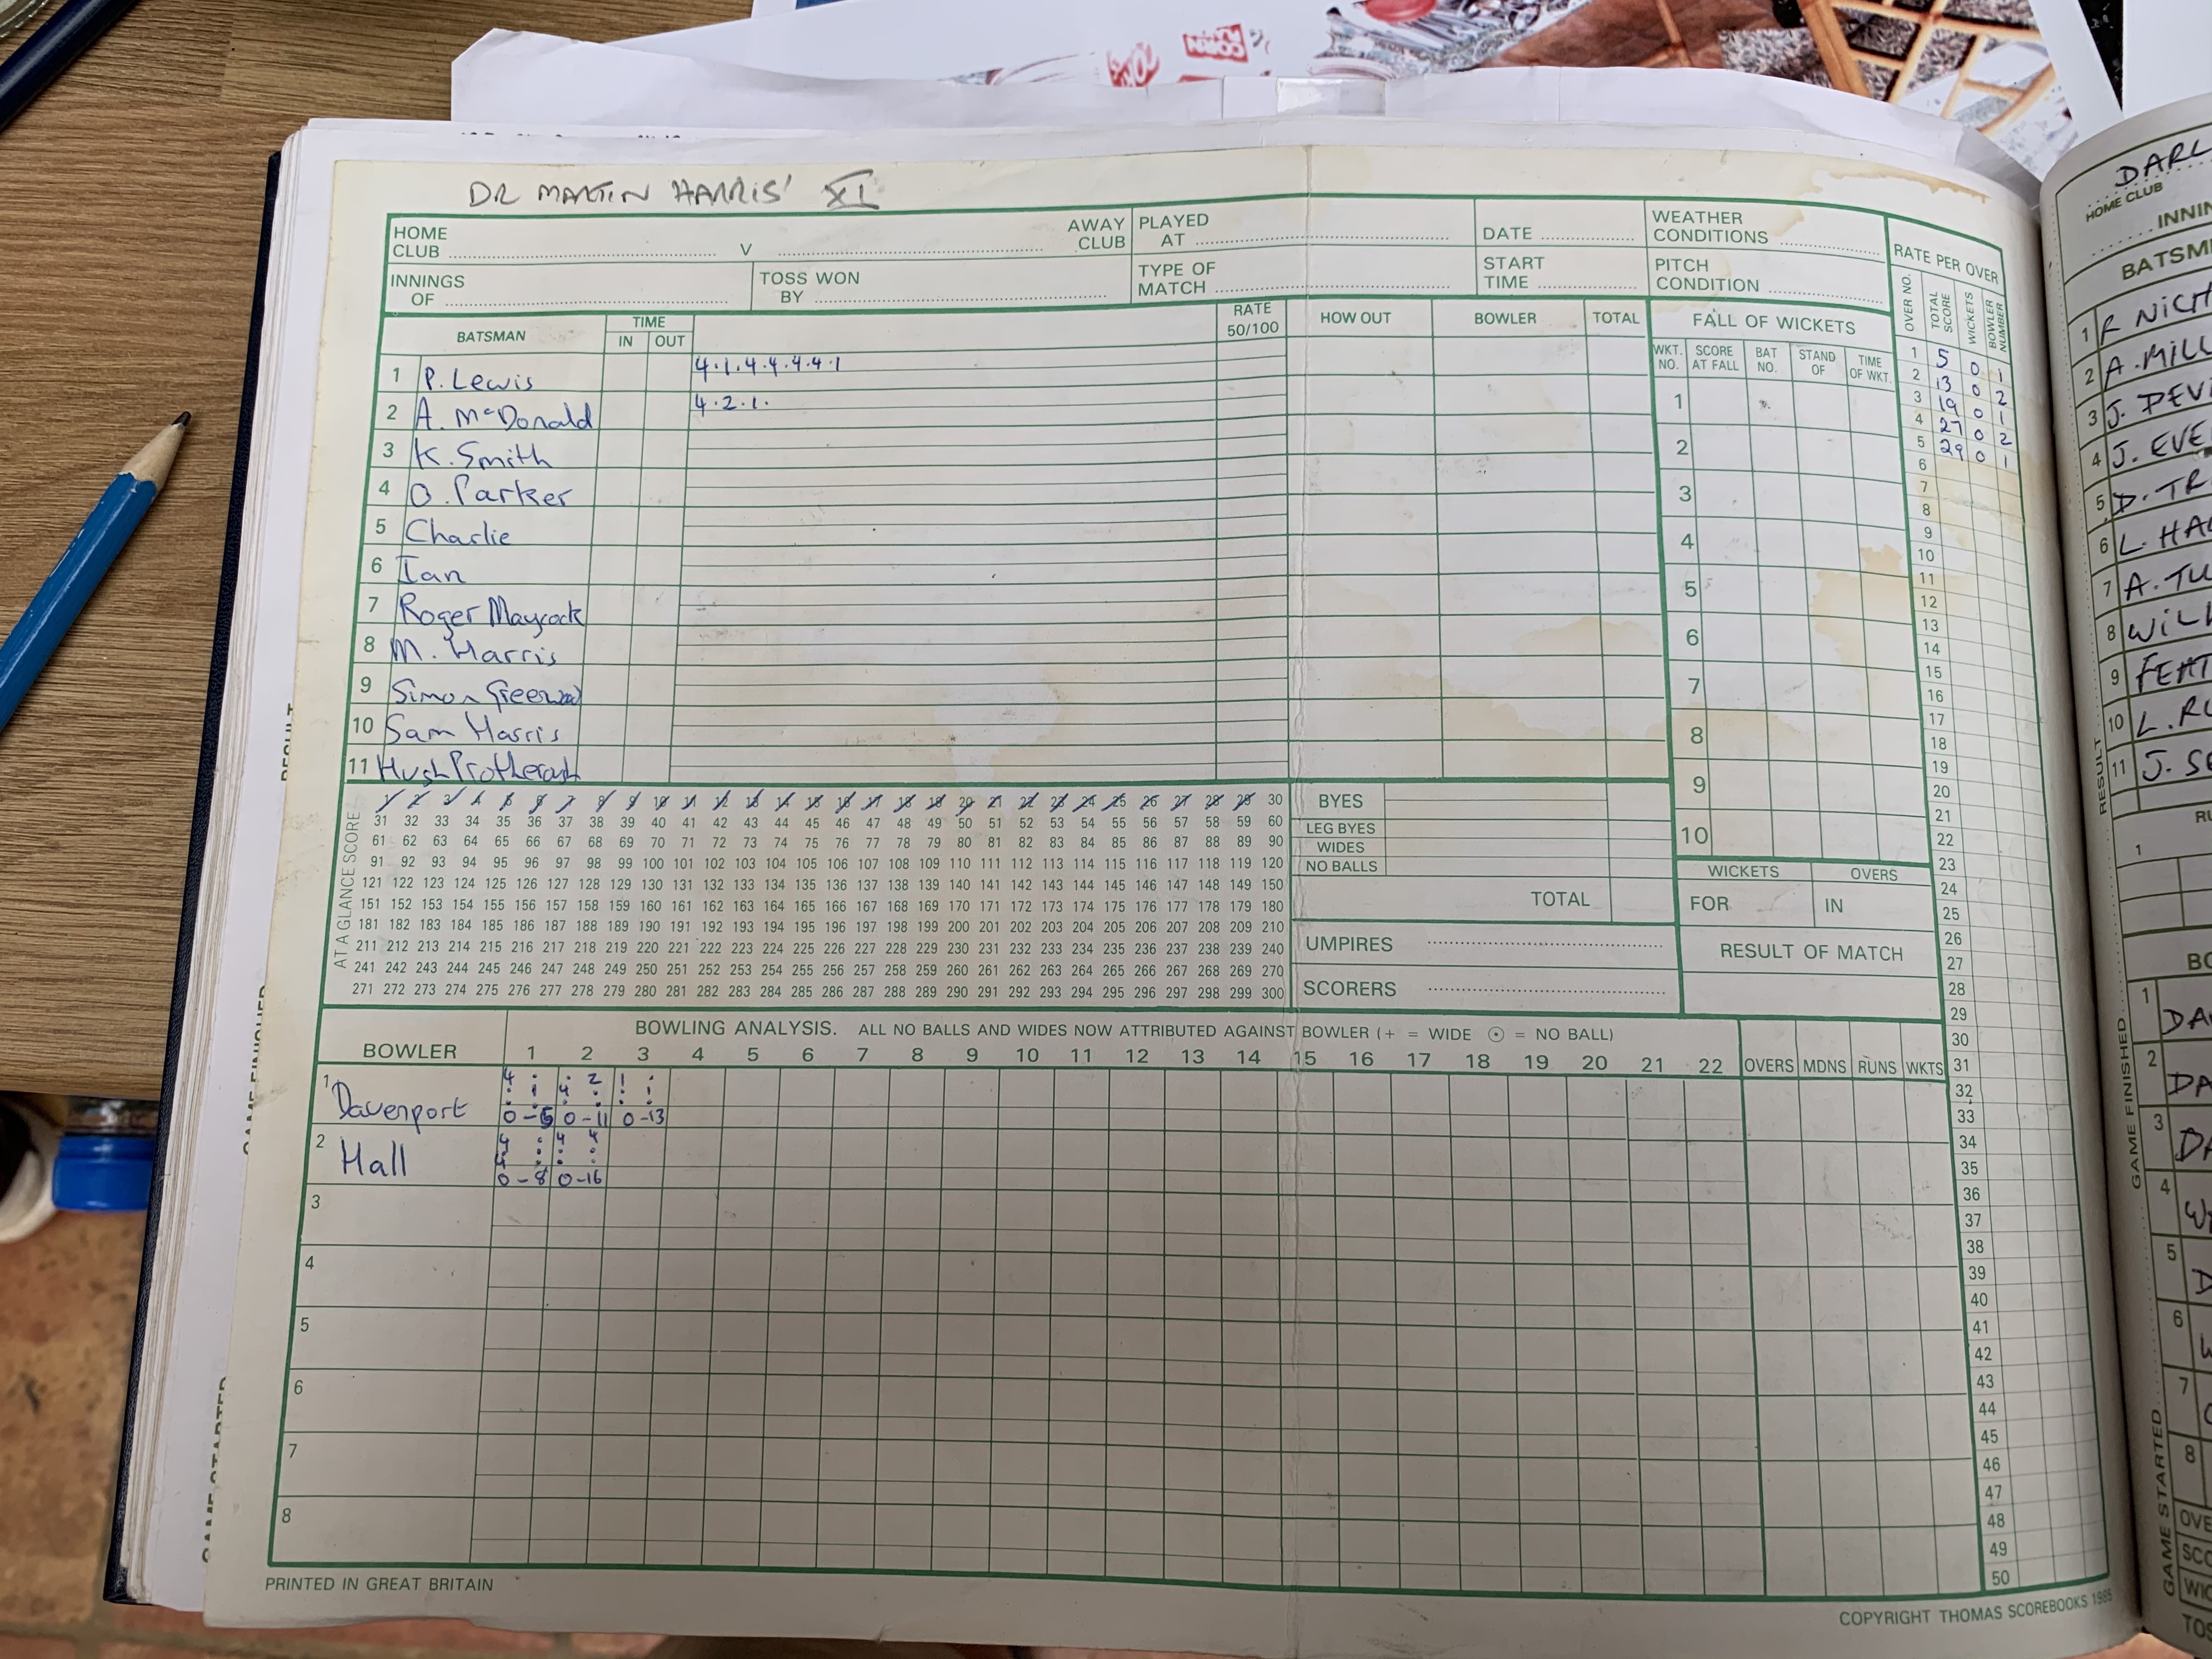 DR MARTIN HARRIS' XI
HOME CLUB V AWAY CLUB
PLAYED AT
DATE
WEATHER CONDITIONS
INNINGS OF
TOSS WON BY
TYPE OF MATCH
START TIME
PITCH CONDITION
RATE PER OVER
OVER NO. TOTAL SCORE WICKETS BOWLER NUMBER
1 5 0 1
2 13 0 2
3 19 0 1
4 27 0 2
5 29 0 1
6
7
8
9
10
11
12
13
14
15
16
17
18
19
20
21
22
23
24
25
26
27
28
29
30
31
32
33
34
35
36
37
38
39
40
41
42
43
44
45
46
47
48
49
50
BATSMAN TIME IN OUT RATE 50/100 HOW OUT BOWLER TOTAL
1 P. Lewis 4.1.4.4.4.4.1
2 A. McDonald 4.2.1.
3 K. Smith
4 O. Parker
5 Charlie
6 Ian
7 Roger Maycock
8 M. Harris
9 Simon
10 Sam Harris
11 Hugh
FALL OF WICKETS
WKT. NO. SCORE AT FALL BAT NO. STAND OF TIME OF WKT.
1
2
3
4
5
6
7
8
9
10
AT A GLANCE SCORE
1 2 3 4 5 6 7 8 9 10 11 12 13 14 15 16 17 18 19 20 21 22 23 24 25 26 27 28 29 30
31 32 33 34 35 36 37 38 39 40 41 42 43 44 45 46 47 48 49 50 51 52 53 54 55 56 57 58 59 60
61 62 63 64 65 66 67 68 69 70 71 72 73 74 75 76 77 78 79 80 81 82 83 84 85 86 87 88 89 90
91 92 93 94 95 96 97 98 99 100 101 102 103 104 105 106 107 108 109 110 111 112 113 114 115 116 117 118 119 120
121 122 123 124 125 126 127 128 129 130 131 132 133 134 135 136 137 138 139 140 141 142 143 144 145 146 147 148 149 150
151 152 153 154 155 156 157 158 159 160 161 162 163 164 165 166 167 168 169 170 171 172 173 174 175 176 177 178 179 180
181 182 183 184 185 186 187 188 189 190 191 192 193 194 195 196 197 198 199 200 201 202 203 204 205 206 207 208 209 210
211 212 213 214 215 216 217 218 219 220 221 222 223 224 225 226 227 228 229 230 231 232 233 234 235 236 237 238 239 240
241 242 243 244 245 246 247 248 249 250 251 252 253 254 255 256 257 258 259 260 261 262 263 264 265 266 267 268 269 270
271 272 273 274 275 276 277 278 279 280 281 282 283 284 285 286 287 288 289 290 291 292 293 294 295 296 297 298 299 300
BYES
LEG BYES
WIDES
NO BALLS
TOTAL
WICKETS OVERS
FOR IN
UMPIRES
SCORERS
RESULT OF MATCH
BOWLING ANALYSIS. ALL NO BALLS AND WIDES NOW ATTRIBUTED AGAINST BOWLER (+ = WIDE ⊙ = NO BALL)
BOWLER 1 2 3 4 5 6 7 8 9 10 11 12 13 14 15 16 17 18 19 20 21 22 OVERS MDNS RUNS WKTS
1 Davenport
4 . . 2 1 .
. 1 4 . . 1
. . . . . .
0-5 0-11 0-13
2 Hall
4 . 4 4
. . . .
4 . . .
0-8 0-16
3
4
5
6
7
8
PRINTED IN GREAT BRITAIN
COPYRIGHT THOMAS SCOREBOOKS 1985
RESULT
GAME FINISHED
GAME STARTED
DARL
HOME CLUB
INNIN
BATSM
1 R NICH
2 A. MILL
3 J. DEVI
4 J. EVE
5 D. TR
6 L. HA
7 A. TU
8 WILK
9 FEAT
10 L. RU
11 J. SE
RESULT
GAME FINISHED
GAME STARTED
RU
1
BO
1 DA
2 DA
3 DA
4 W
5 D
6 W
7
8
OVE
SCO
WIC
TOS